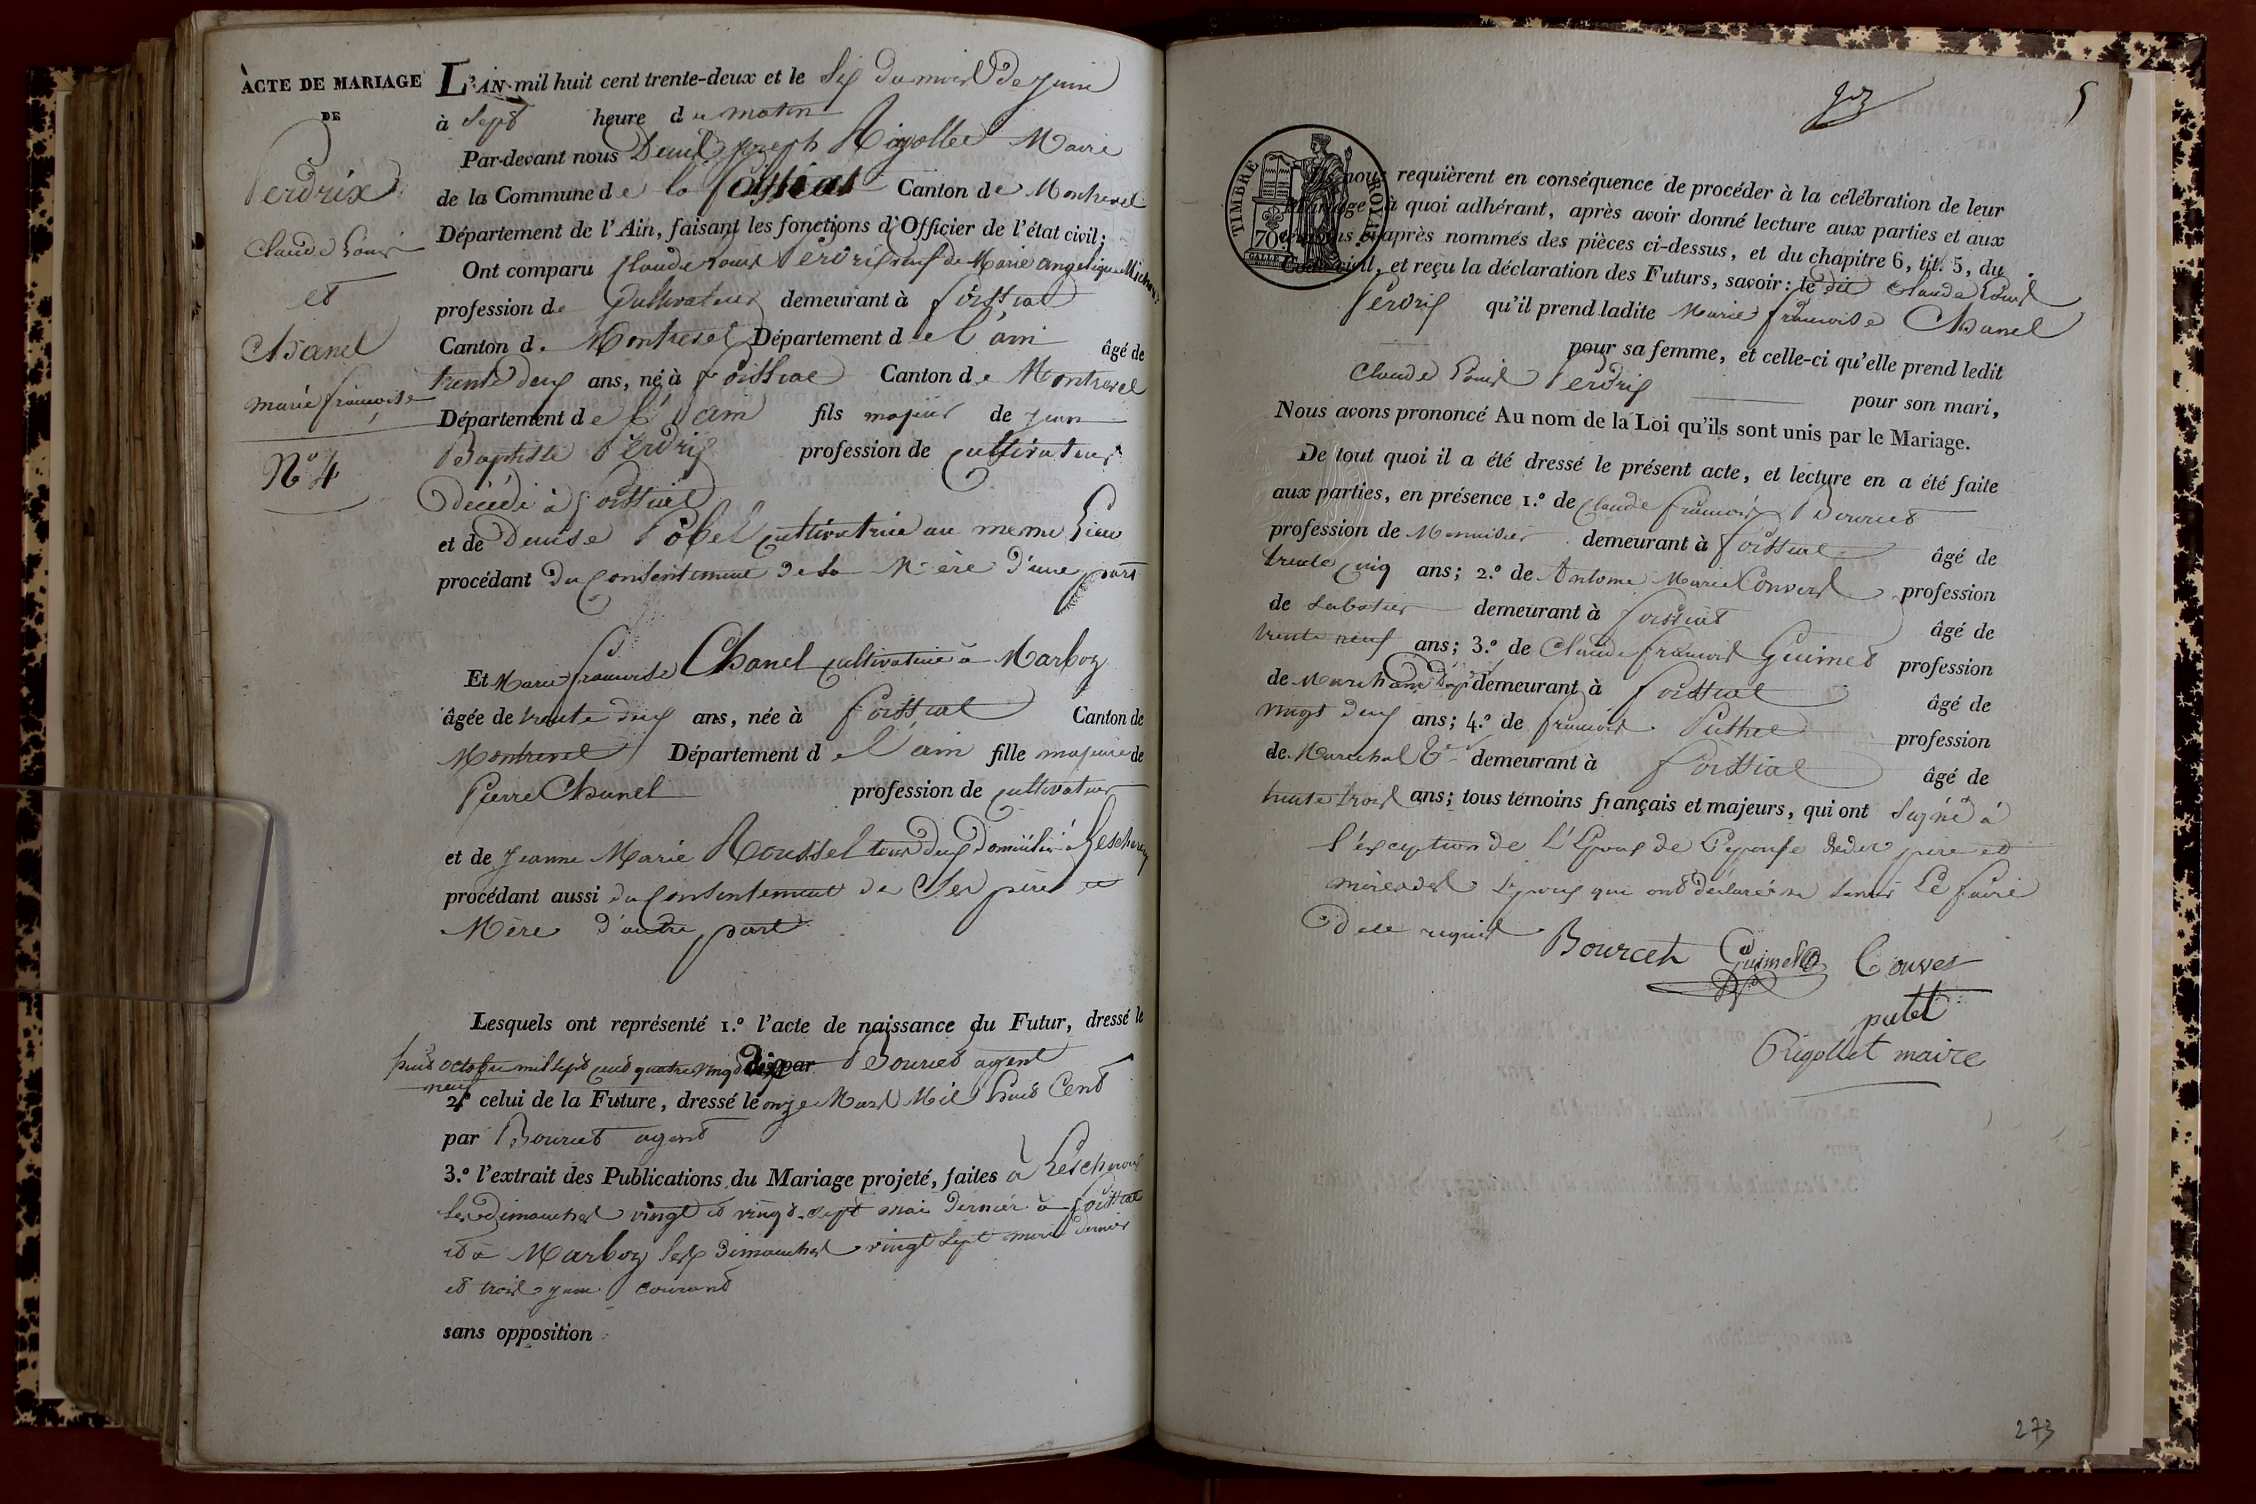 ACTE DE MARIAGE
DE
Perdrix
Claude Louis
et
Chanel
marie françoise
N° 4
L'AN mil huit cent trente-deux et le Six du mois De juin
à Sept heure du matin
Par-devant nous Denis joseph Rigollet Maire
de la Commune de la foissiat Canton de Montrevel
Département de l'Ain, faisant les fonctions d'Officier de l'état civil;
Ont comparu Claude Louis Perdrix veuf de Marie angelique
profession de Cultivateur demeurant à foissiat
Canton de Montrevel Département de l'ain âgé de
trente deux ans, né à foissiat Canton de Montrevel
Département de l'ain fils majeur de jean
Baptiste Perdrix profession de cultivateur
Décédé à foissiat
et de Denise Pobel cultivatrice au meme Lieu
procédant du consentement de sa Mère d'une part
Et Marie françoise Chanel cultivatrice à Marboz
âgée de trente deux ans, née à foissiat Canton de
Montrevel Département de l'ain fille majeure de
Pierre Chanel profession de cultivateur
et de Jeanne Marie Roussel tous deux Domiciliés à Lescheroux
procédant aussi du consentement de ses père et
Mère d'autre part
Lesquels ont représenté 1.° l'acte de naissance du Futur, dressé le
huit octobre mil sept cent quatre vingt dix par Bourcet agent
neuf
2.° celui de la Future, dressé le onze Mars Mil huit Cent
par Bourcet agent
3.° l'extrait des Publications du Mariage projeté, faites à Lescheroux
les dimanches vingt et vingt-sept mai dernier à foissiat
et à Marboz les dimanches vingt sept mai dernier
et trois juin courant
sans opposition
5
TIMBRE ROYAL
70
Ils nous requièrent en conséquence de procéder à la célébration de leur
Mariage; à quoi adhérant, après avoir donné lecture aux parties et aux
témoins ci-après nommés des pièces ci-dessus, et du chapitre 6, tit. 5, du
Code civil, et reçu la déclaration des Futurs, savoir: le dit Claude Louis
Perdrix qu'il prend ladite Marie françoise Chanel
pour sa femme, et celle-ci qu'elle prend ledit
Claude Louis Perdrix pour son mari,
Nous avons prononcé Au nom de la Loi qu'ils sont unis par le Mariage.
De tout quoi il a été dressé le présent acte, et lecture en a été faite
aux parties, en présence 1.° de Claude françois Bourcet
profession de Menuisier demeurant à foissiat âgé de
trente cinq ans; 2.° de Antoine Marie Convers profession
de Sabotier demeurant à foissiat âgé de
trente neuf ans; 3.° de Claude françois Guimet profession
de Marchand demeurant à foissiat âgé de
vingt deux ans; 4.° de françois Puthet profession
de Marechal demeurant à foissiat âgé de
trente trois ans; tous témoins français et majeurs, qui ont signé à
l'exception de L'Epoux de l'epouse père et
mère qui ont déclaré ne savoir Le faire
De ce requis
Bourcet Guimet Convers
putet
Rigollet maire
273